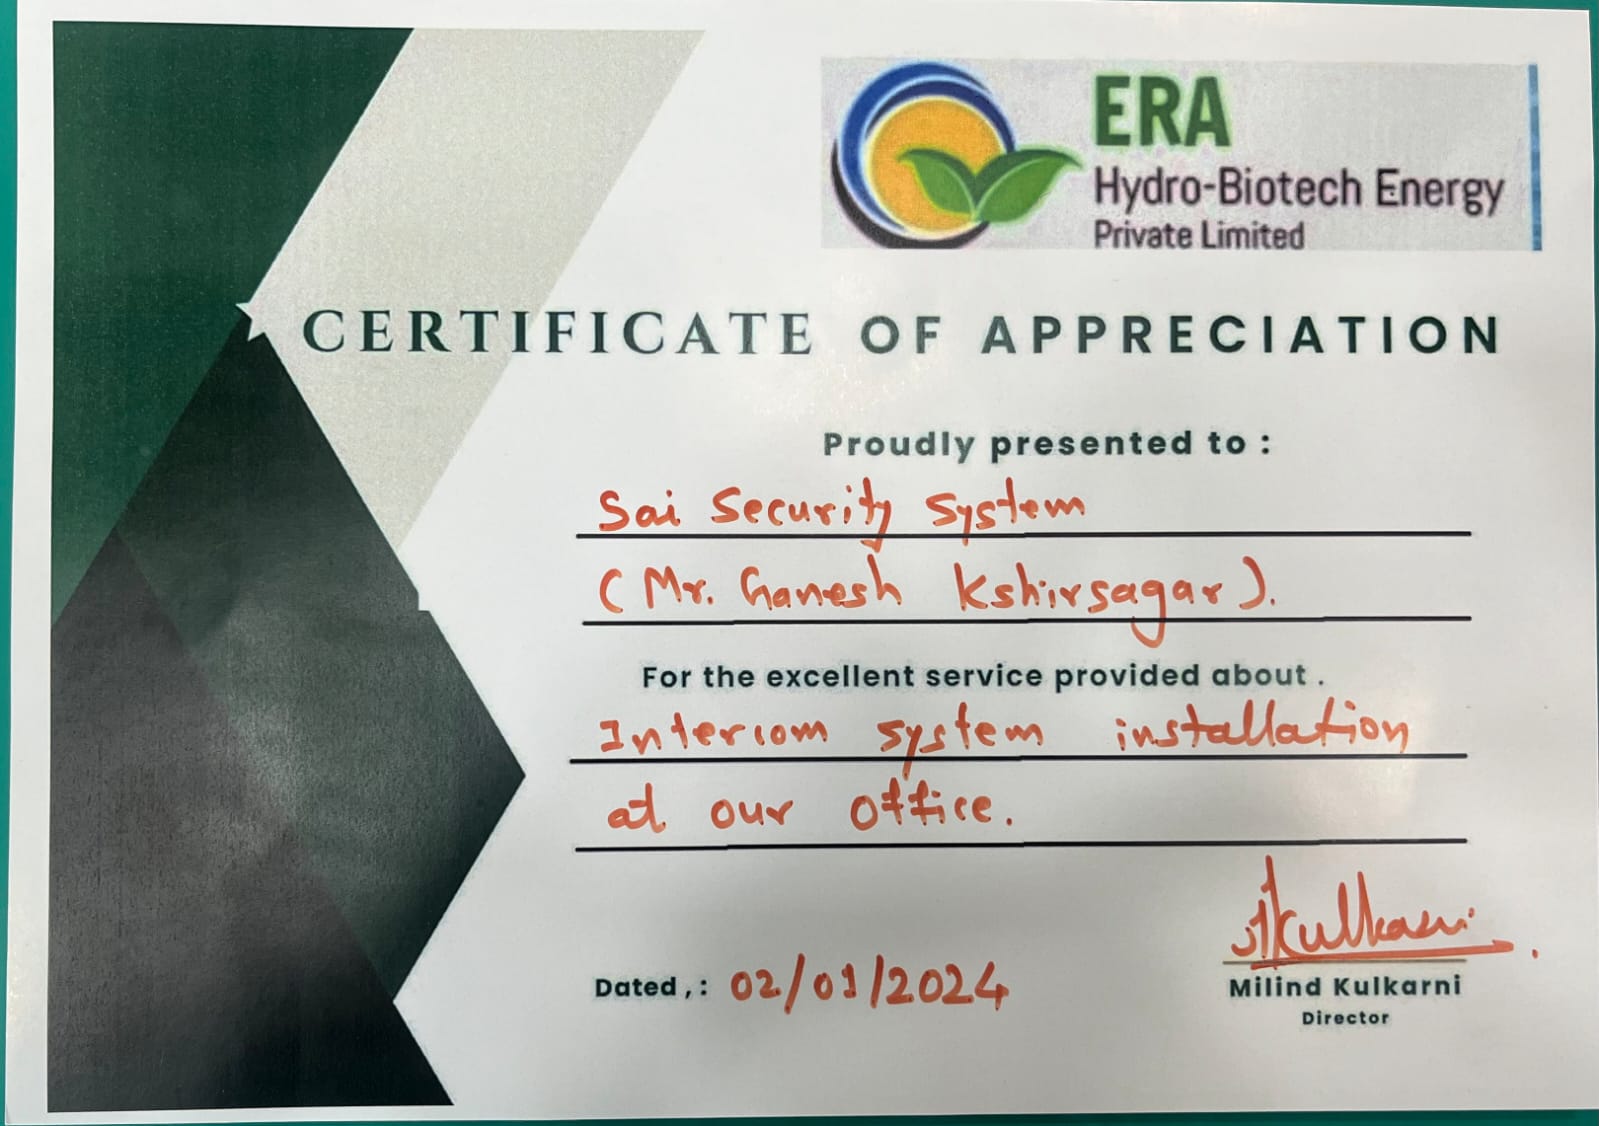 ERA
Hydro-Biotech Energy
Private Limited
CERTIFICATE OF APPRECIATION
Proudly presented to :
Sai Security System
(Mr. Ganesh Kshirsagar).
For the excellent service provided about .
Intercom system installation
at our office.
Kulkarni
Dated , : 02/01/2024
Milind Kulkarni
Director